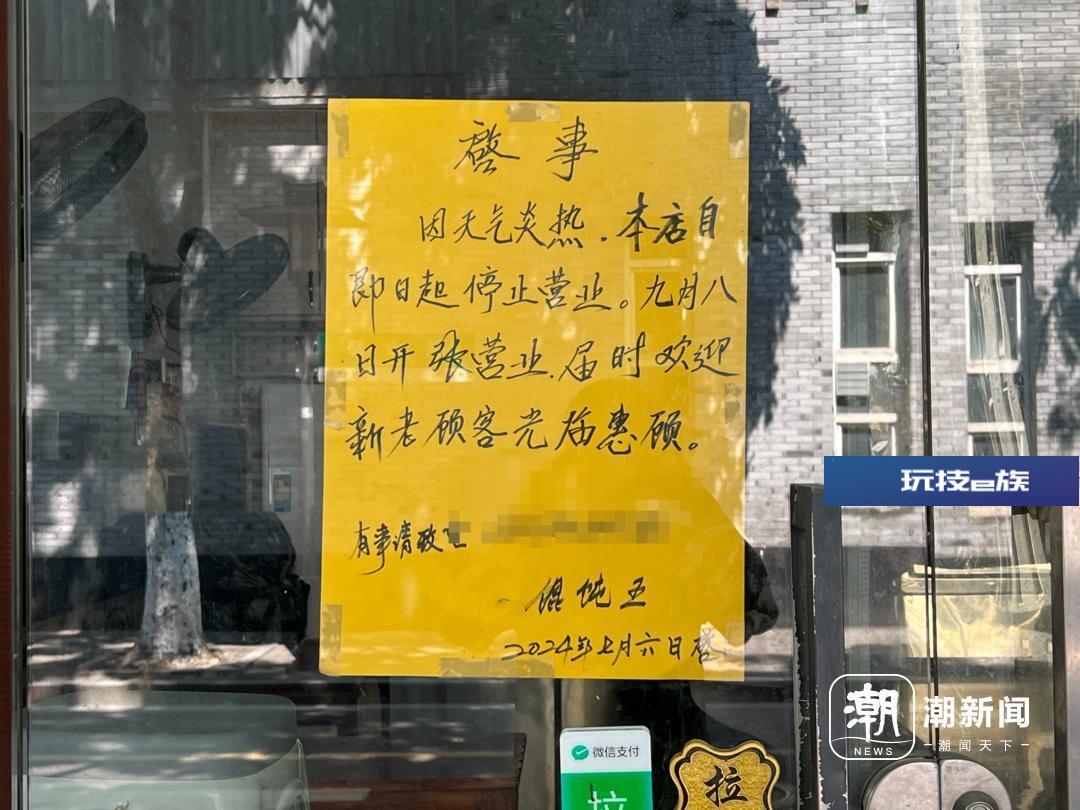 啓事
因天气炎热.本店自
即日起停止营业。九月八
日开张营业.届时欢迎
新老顾客光临惠顾。
有事请致电
馄饨王
2024年七月六日启
玩技e族
潮
NEWS
潮新闻
潮闻天下
微信支付
拉
拉